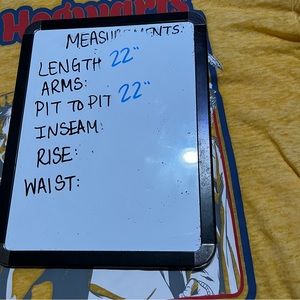 Hogwarts
MEASUREMENTS:
LENGTH 22"
ARMS:
PIT TO PIT 22"
INSEAM:
RISE:
WAIST: